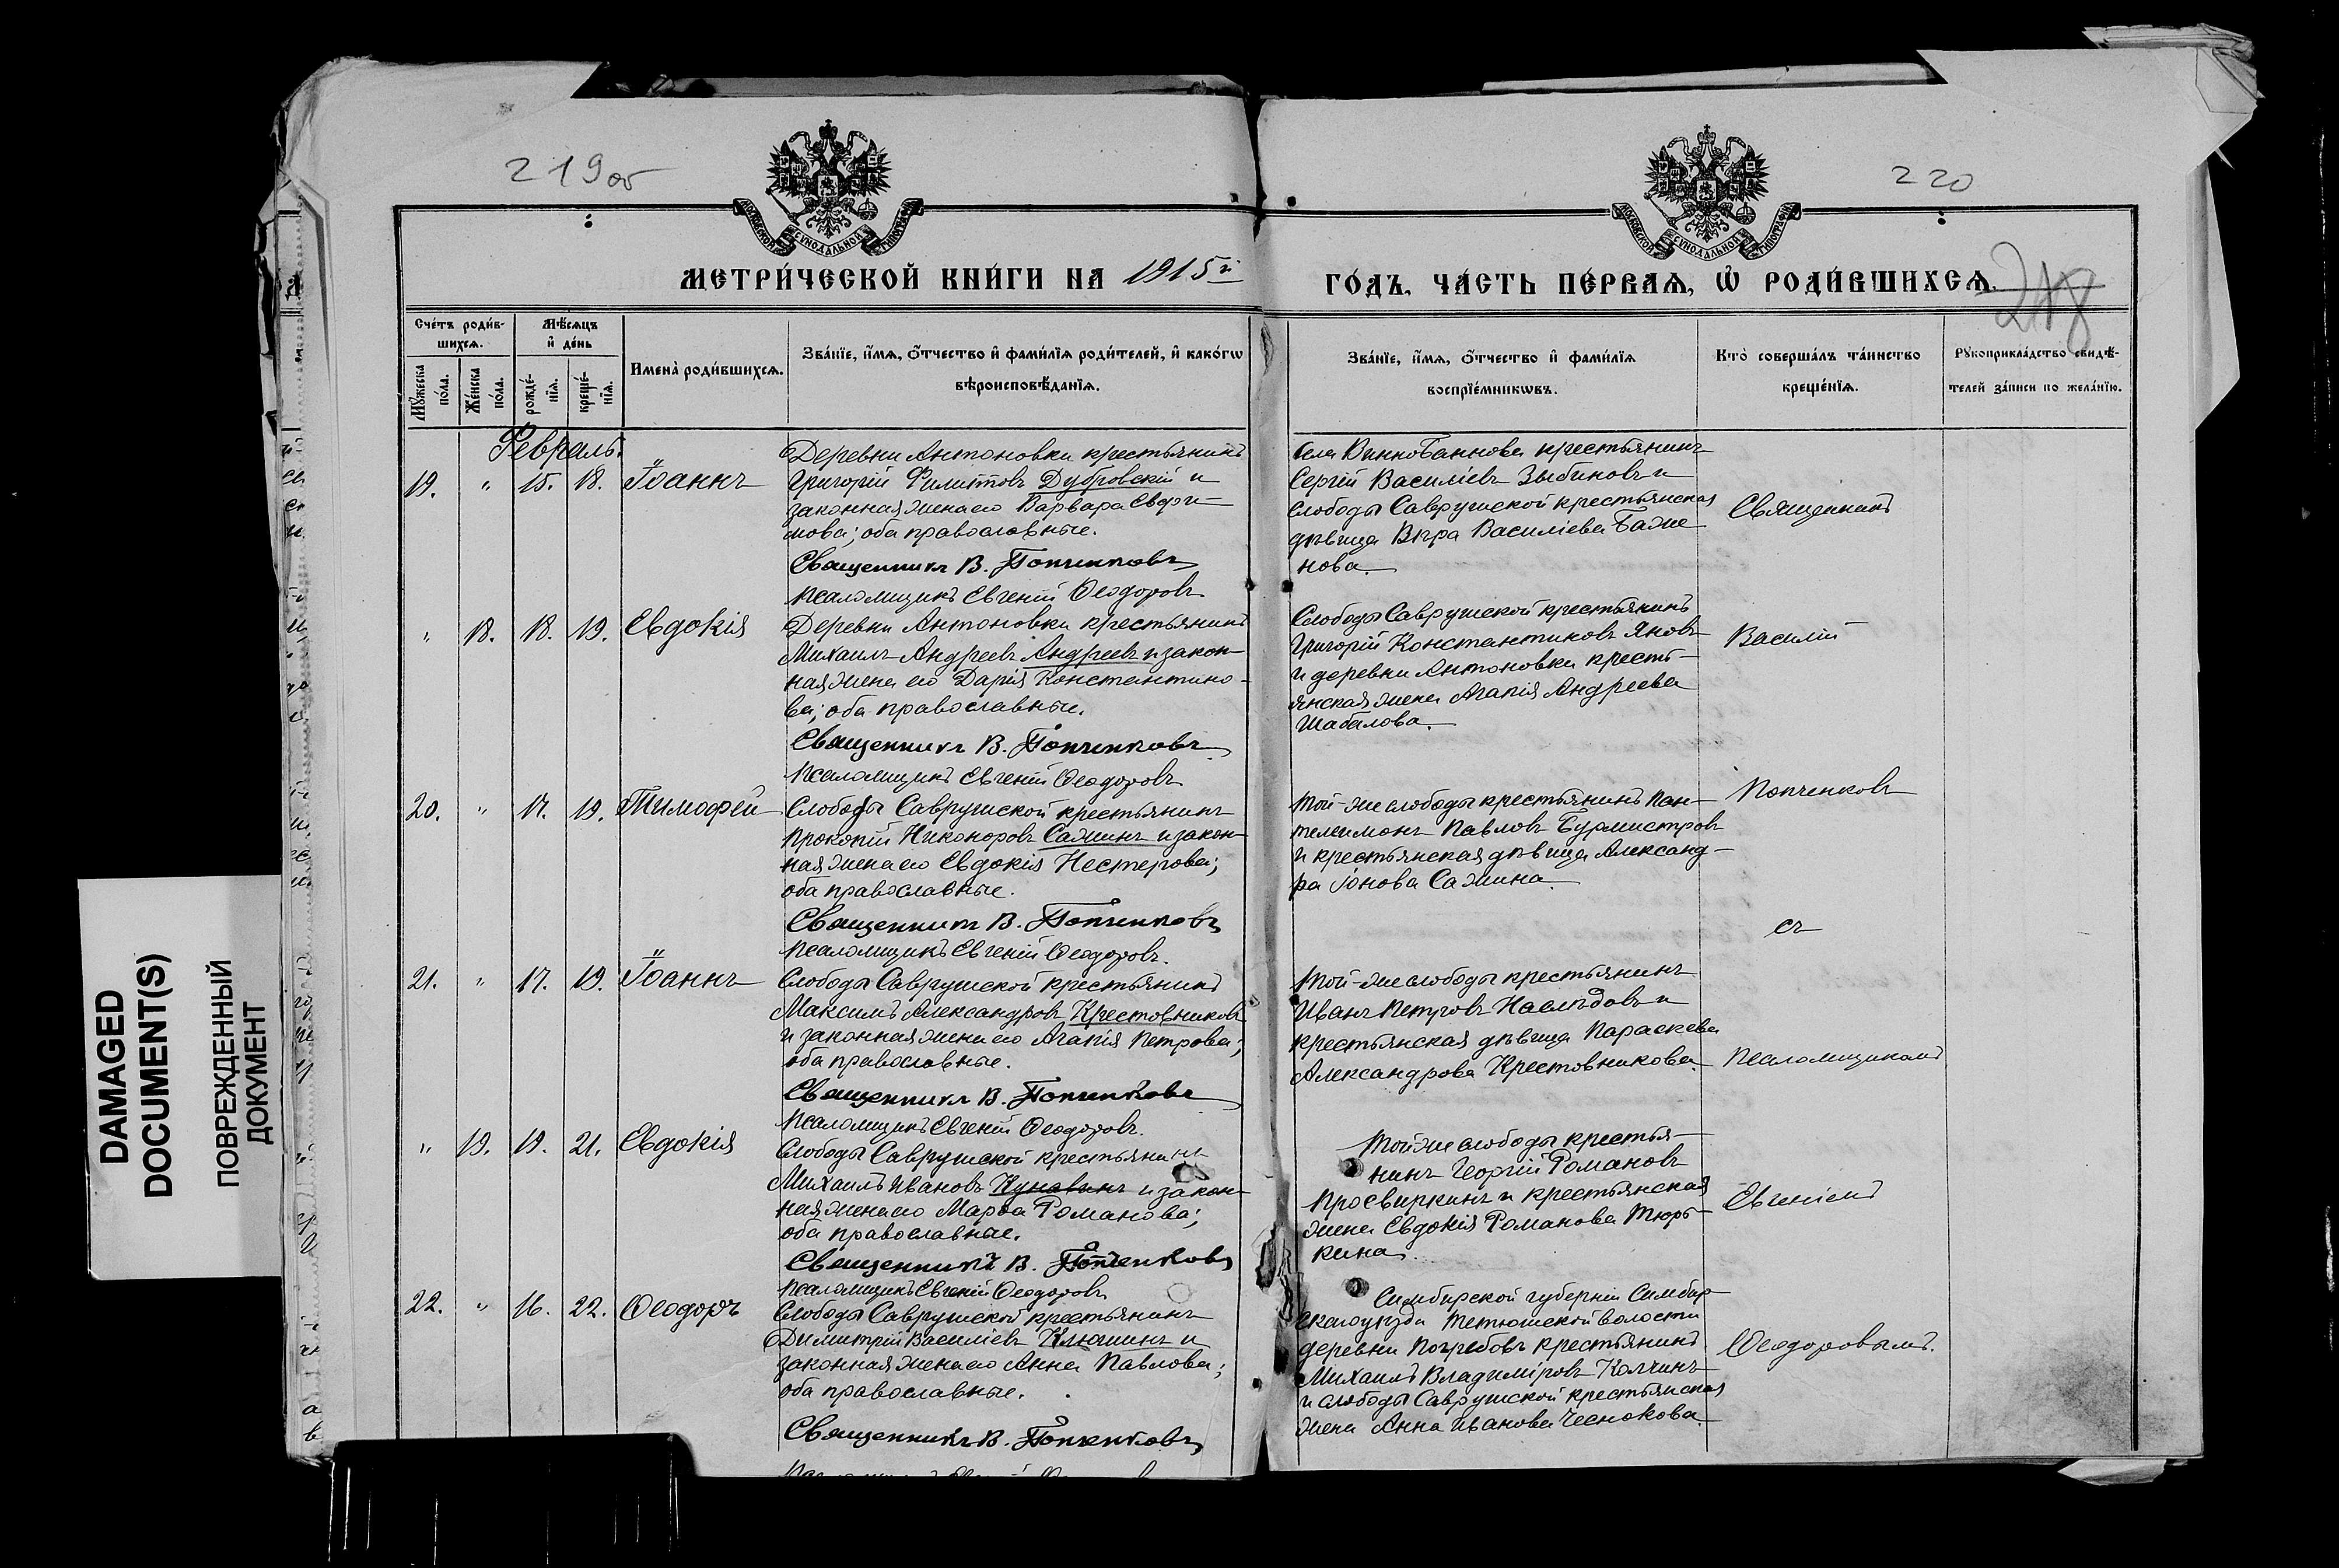 219 об
220
218
МОСКОВСКОЙ СѴНОДАЛЬНОЙ ТИПОГРАФІИ
МОСКОВСКОЙ СѴНОДАЛЬНОЙ ТИПОГРАФІИ
МЕТРИ́ЧЕСКОЙ КНИ́ГИ НА 1915й
ГО́ДЪ, ЧА́СТЬ ПЕ́РВАѦ, Ѽ РОДИ́ВШИХСѦ.
Сче́тъ роди́в-
шихсѧ.
Мꙋ́жеска по́ла.
Же́нска по́ла.
Мѣ́сѧцъ
и҆ де́нь
рожде́-
нїѧ.
креще́-
нїѧ.
И҆мена̀ роди́вшихсѧ.
Зва́нїе, и҆́мѧ, ѻ҆́тчество и҆ фами́лїѧ роди́телей, и҆ како́гѡ
вѣроисповѣ́данїѧ.
Зва́нїе, и҆́мѧ, ѻ҆́тчество и҆ фами́лїѧ
воспрїе́мникѡвъ.
Кто̀ соверша́лъ та́инство
креще́нїѧ.
Рꙋкоприкла́дство свидѣ́-
телей за́писи по жела́нїю.
Февраль.
19. " 15. 18. Іоаннъ
Деревни Антоновки крестьянинъ
Григорій Филиппов Дубровскій и
законная жена его Варвара Евфи-
мова; оба православные.
Священникъ В. Попченковъ
Псаломщикъ Евгеній Ѳеодоровъ
Села Виннобаннова крестьянинъ
Сергій Василіевъ Зыбиновъ и
слободы Саврушской крестьянская
дѣвица Вѣра Василіева Баже
нова.
Священникъ
" 18. 18. 19. Евдокія
Деревни Антоновки крестьянинъ
Михаилъ Андреевъ Андреевъ и закон-
ная жена его Дарія Константино-
ва; оба православные.
Священникъ В. Попченковъ
Псаломщикъ Евгеній Ѳеодоровъ
Слободы Саврушской крестьянинъ
Григорій Константиновъ Яновъ
и деревни Антоновки кресть-
янская жена Агапія Андреева
Шабалова.
Василій
20. " 17. 19. Тимоѳей
Слободы Саврушской крестьянинъ
Прокопій Никаноровъ Сажинъ и закон-
ная жена его Евдокія Нестерова;
оба православные.
Священникъ В. Попченковъ
Псаломщикъ Евгеній Ѳеодоровъ.
Той-же слободы крестьянинъ Пан-
телеимонъ Павловъ Бурмистровъ
и крестьянская дѣвица Александ-
ра Іонова Сажина.
Попченковъ
съ
21. " 17. 19. Іоаннъ
Слободы Саврушской крестьянинъ
Максимъ Александровъ Крестовниковъ
и законная жена его Агапія Петрова;
оба православные.
Священникъ В. Попченковъ
Псаломщикъ Евгеній Ѳеодоровъ.
Той-же слободы крестьянинъ
Иванъ Петровъ Наслѣдовъ и
крестьянская дѣвица Параскева
Александрова Крестовникова.
Псаломщикомъ
" 19. 19. 21. Евдокія
Слободы Саврушской крестьянинъ
Михаилъ Ивановъ Куновинъ и закон-
ная жена его Марѳа Романова;
оба православные.
Священникъ В. Попченковъ
Псаломщикъ Евгеній Ѳеодоровъ
Той-же слободы крестья-
нинъ Георгій Романовъ
Просвиркинъ и крестьянская
жена Евдокія Романова Тюрь-
кина.
Евгеніемъ
22. " 16. 22. Ѳеодоръ
Слободы Саврушской крестьянинъ
Димитрій Василіевъ Клюшинъ и
законная жена его Анна Павлова;
оба православные.
Священникъ В. Попченковъ
Симбирской губерніи Симбир-
скаго уѣзда Тетюшской волости
деревни Погребовъ крестьянинъ
Михаилъ Владиміровъ Колчинъ
и слободы Саврушской крестьянская
жена Анна Иванова Чеснокова.
Ѳеодоровымъ.
DAMAGED
DOCUMENT(S)
ПОВРЕЖДЕННЫЙ
ДОКУМЕНТ